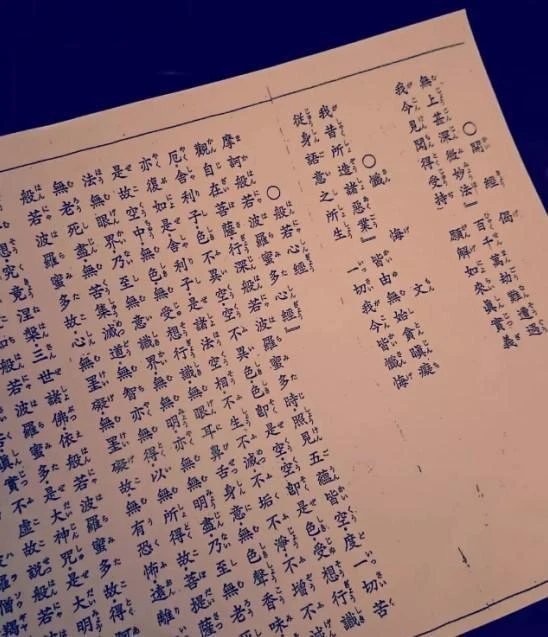 ○開經偈
無上甚深微妙法 百千萬劫難遭遇
我今見聞得受持 願解如來眞實義
○懺悔文
我昔所造諸惡業 皆由無始貪瞋癡
從身語意之所生 一切我今皆懺悔
○般若心經
摩訶般若波羅蜜多心經
觀自在菩薩行深般若波羅蜜多時照見五蘊皆空度一切苦
厄舍利子色不異空空不異色色卽是空空卽是色受想行識
亦復如是舍利子是諸法空相不生不滅不垢不淨不增不
是故空中無色無受想行識無眼耳鼻舌身意無色聲香味
法無眼界乃至無意識界無無明亦無無明盡乃至無老
無老死盡無苦集滅道無智亦無得以無所得故菩提薩
般若波羅蜜多故心無罣礙無罣礙故無有恐怖遠離
想究竟涅槃三世諸佛依般若波羅蜜多故得阿
知般若波羅蜜多是大神咒是大明
眞實不虛故說般若
羅僧揭